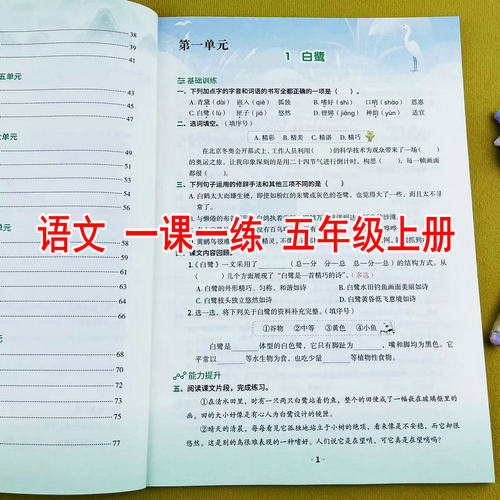 38
39
五单元
44
47
60
64
67
68
70
77
第一单元
1 白鹭
基础训练
一、下列加点字的字音和词语的书写全都正确的一项是( )。
A. 青黛(dài) 嵌入(qiè) 孤独
B. 嗜好(shì) 口哨(shào) 恩惠
C. 白鹭(lù) 匣子(jiá) 悠然
二、选词填空。(填序号)
A. 精彩 B. 精美 C. 精湛 D. 精巧
在北京冬奥会开幕式上,工作人员利用( )的科学技术为观众带来了一场( )
的奥运之旅,让我印象深刻的是用二十四节气进行倒计时,构思( ),每一帧画面
都很( )。
三、下列句子运用的修辞手法和其他三项不同的是( )。
A. 白鹤太大而嫌生硬,即使如粉红的朱鹭或灰色的苍鹭,也觉得大了一些,而且太不
寻常了。
语文 一课一练 五年级上册
课文内容回顾。
1.《白鹭》一文采用了( )(总—分 分—总 总—分—总)的结构方式,从
( )几个方面展现了“白鹭是一首精巧的诗”。(多选)
A. 白鹭的外形精巧、匀称、和谐如诗
B. 白鹭水田钓鱼的画面美丽如诗
C. 白鹭枝头独立悠然如诗
D. 白鹭黄昏低飞意境如诗
2. 选一选,将下列关于白鹭的资料补充完整。(填序号)
①谷物 ②中等 ③黄色 ④小鱼
白鹭是 体型的白色鹭,它只有脚趾为 ,嘴和脚均为黑色。它
平常以 等水生物为食,也吃少量 等植物性食物。
能力提升
五、阅读课文片段,完成练习。
①在清水田里,时有一只两只白鹭站着钓鱼,整个的田便成了一幅嵌在玻璃框里的
画。田的大小好像是有心人为白鹭设计的镜匣。
②晴天的清晨,每每看见它孤独地站立于小树的绝顶,看来像是不安稳,而它却很
悠然。这是别的鸟很难表现的一种嗜好。人们说它是在望哨,可它真是在望哨吗?
1